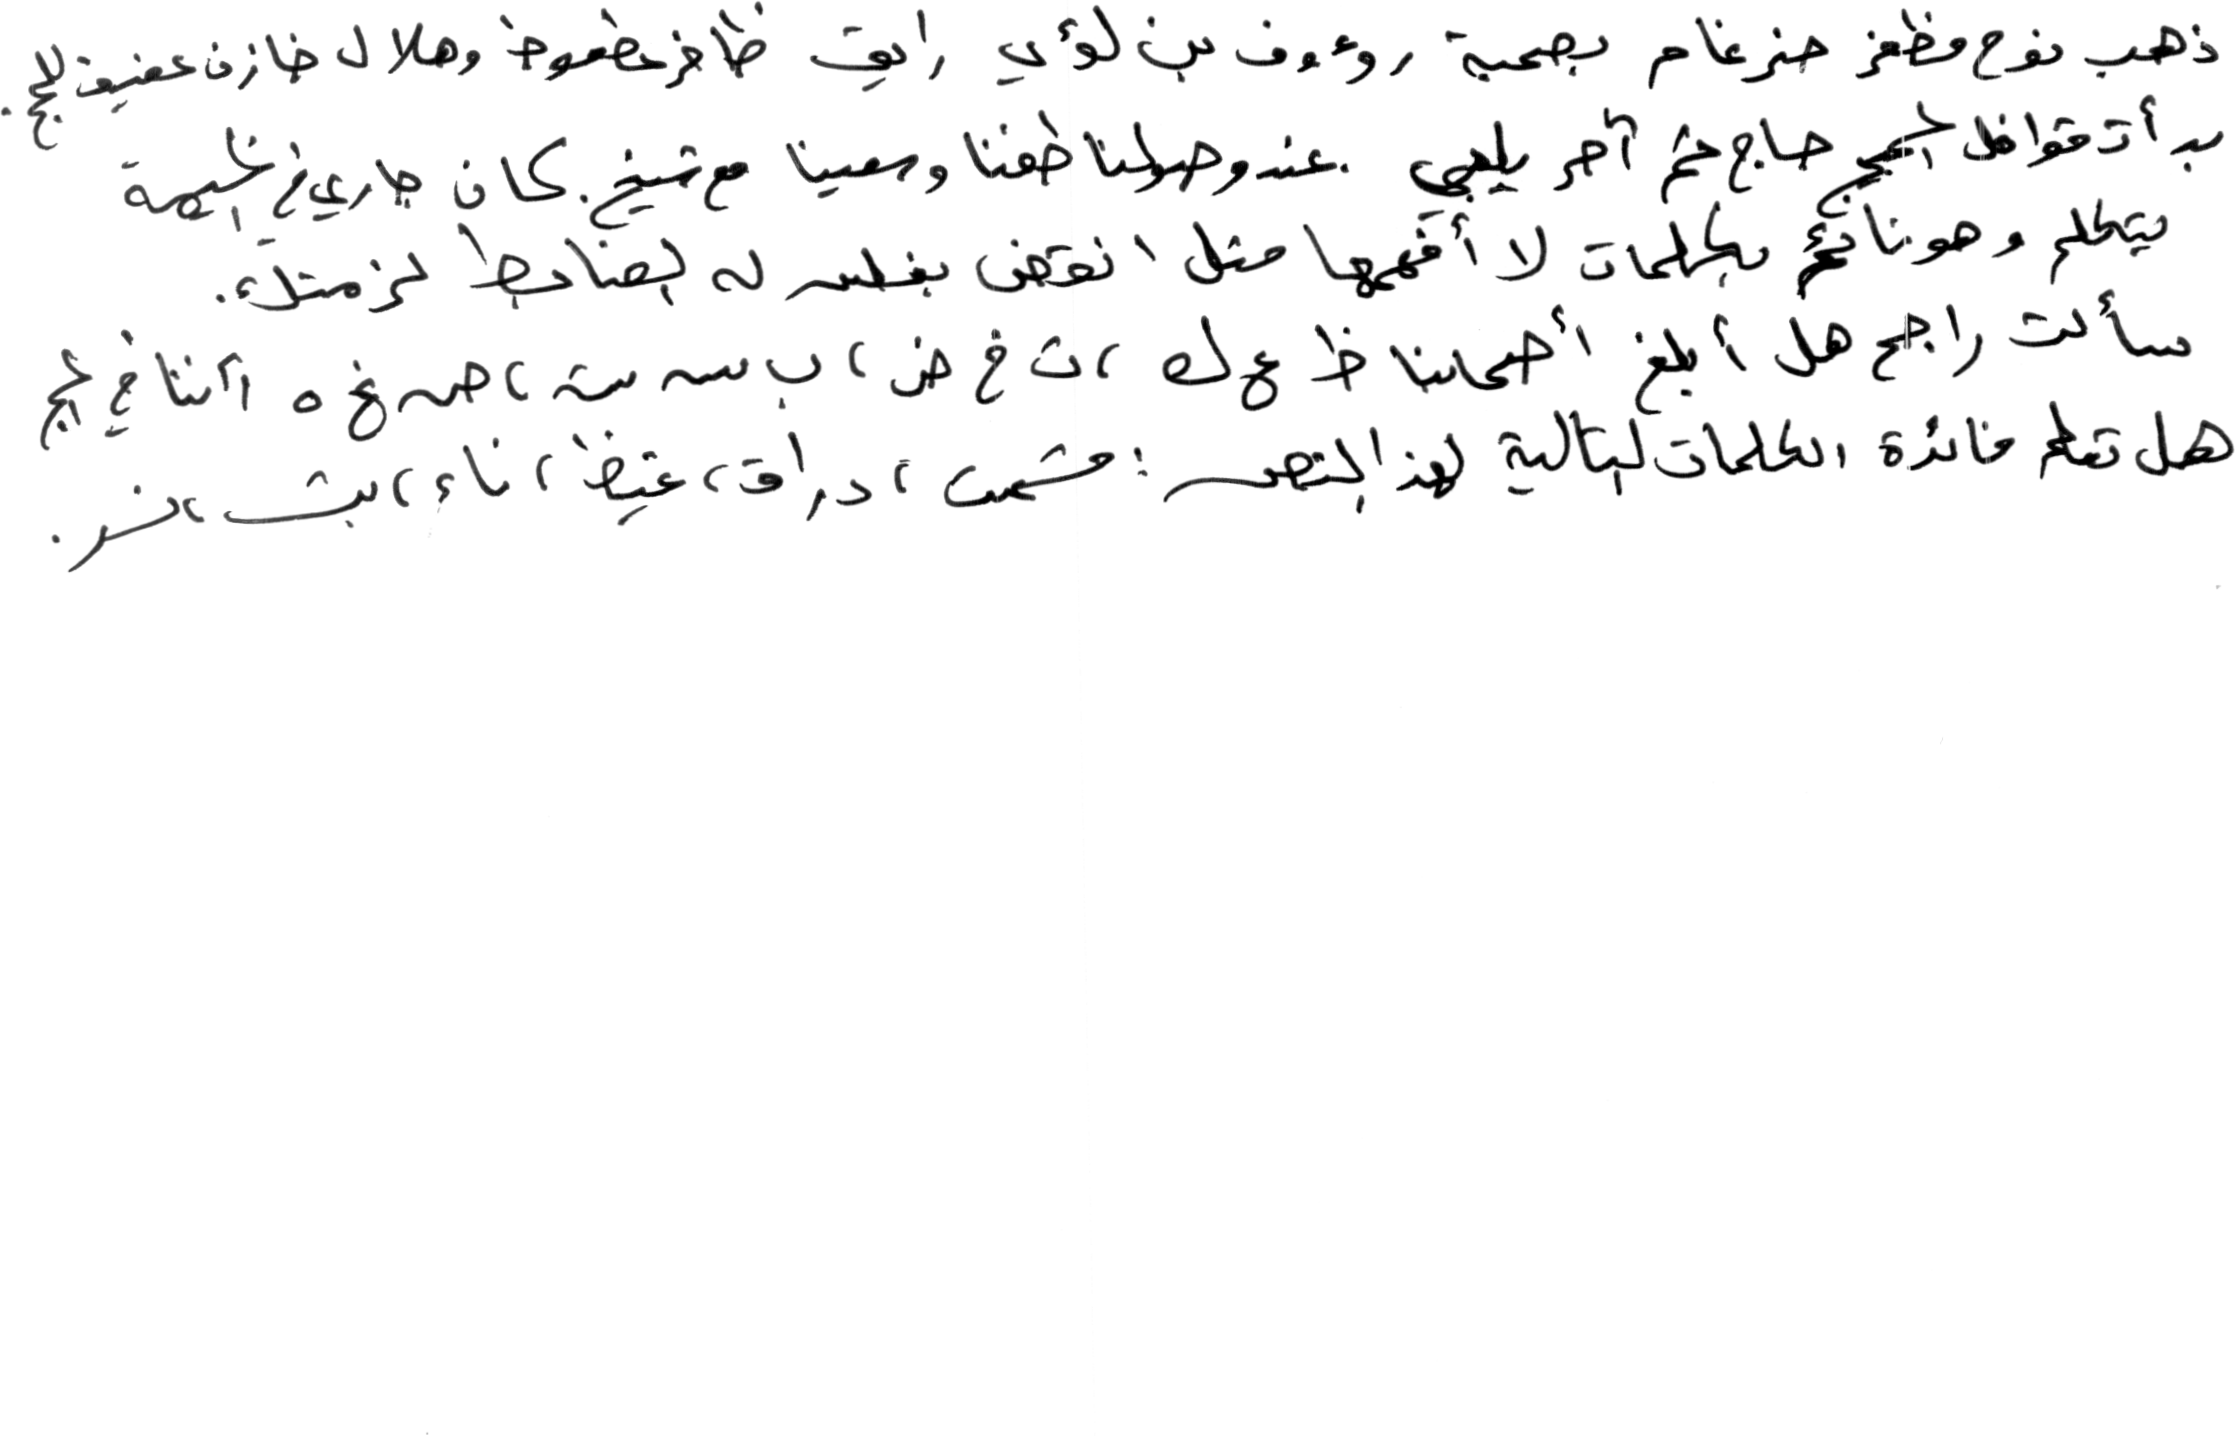 ذهب نوح ومظفر ضرغام بصحبة رءووف بن لؤي رايق ظافر محظوظ وهلال خازن عفيف للحج.
بدأت قوافل الحجيج حاج ثم آخر يلبي. عند وصولنا طفنا وسعينا مع شيخ. كان جاري في الخيمة
يتكلم وهو نائم بكلمات لا أفهمها مثل انقض بغلس له لضابط لز مثلث.
سألت راجح هل أبلغ أصحابنا ظ ع ك، ث خ ض، ب س ة، ص غ ه اثنا في الحج
هل تعلم فائدة الكلمات التالية لهذا النص: مشمش، دراق، غيظ، ناء، ابث، نر.